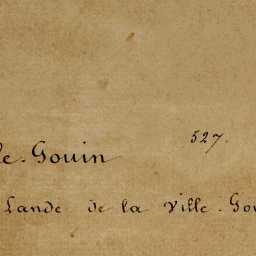 527.
le-Gouin
Lande de la Ville-Gou